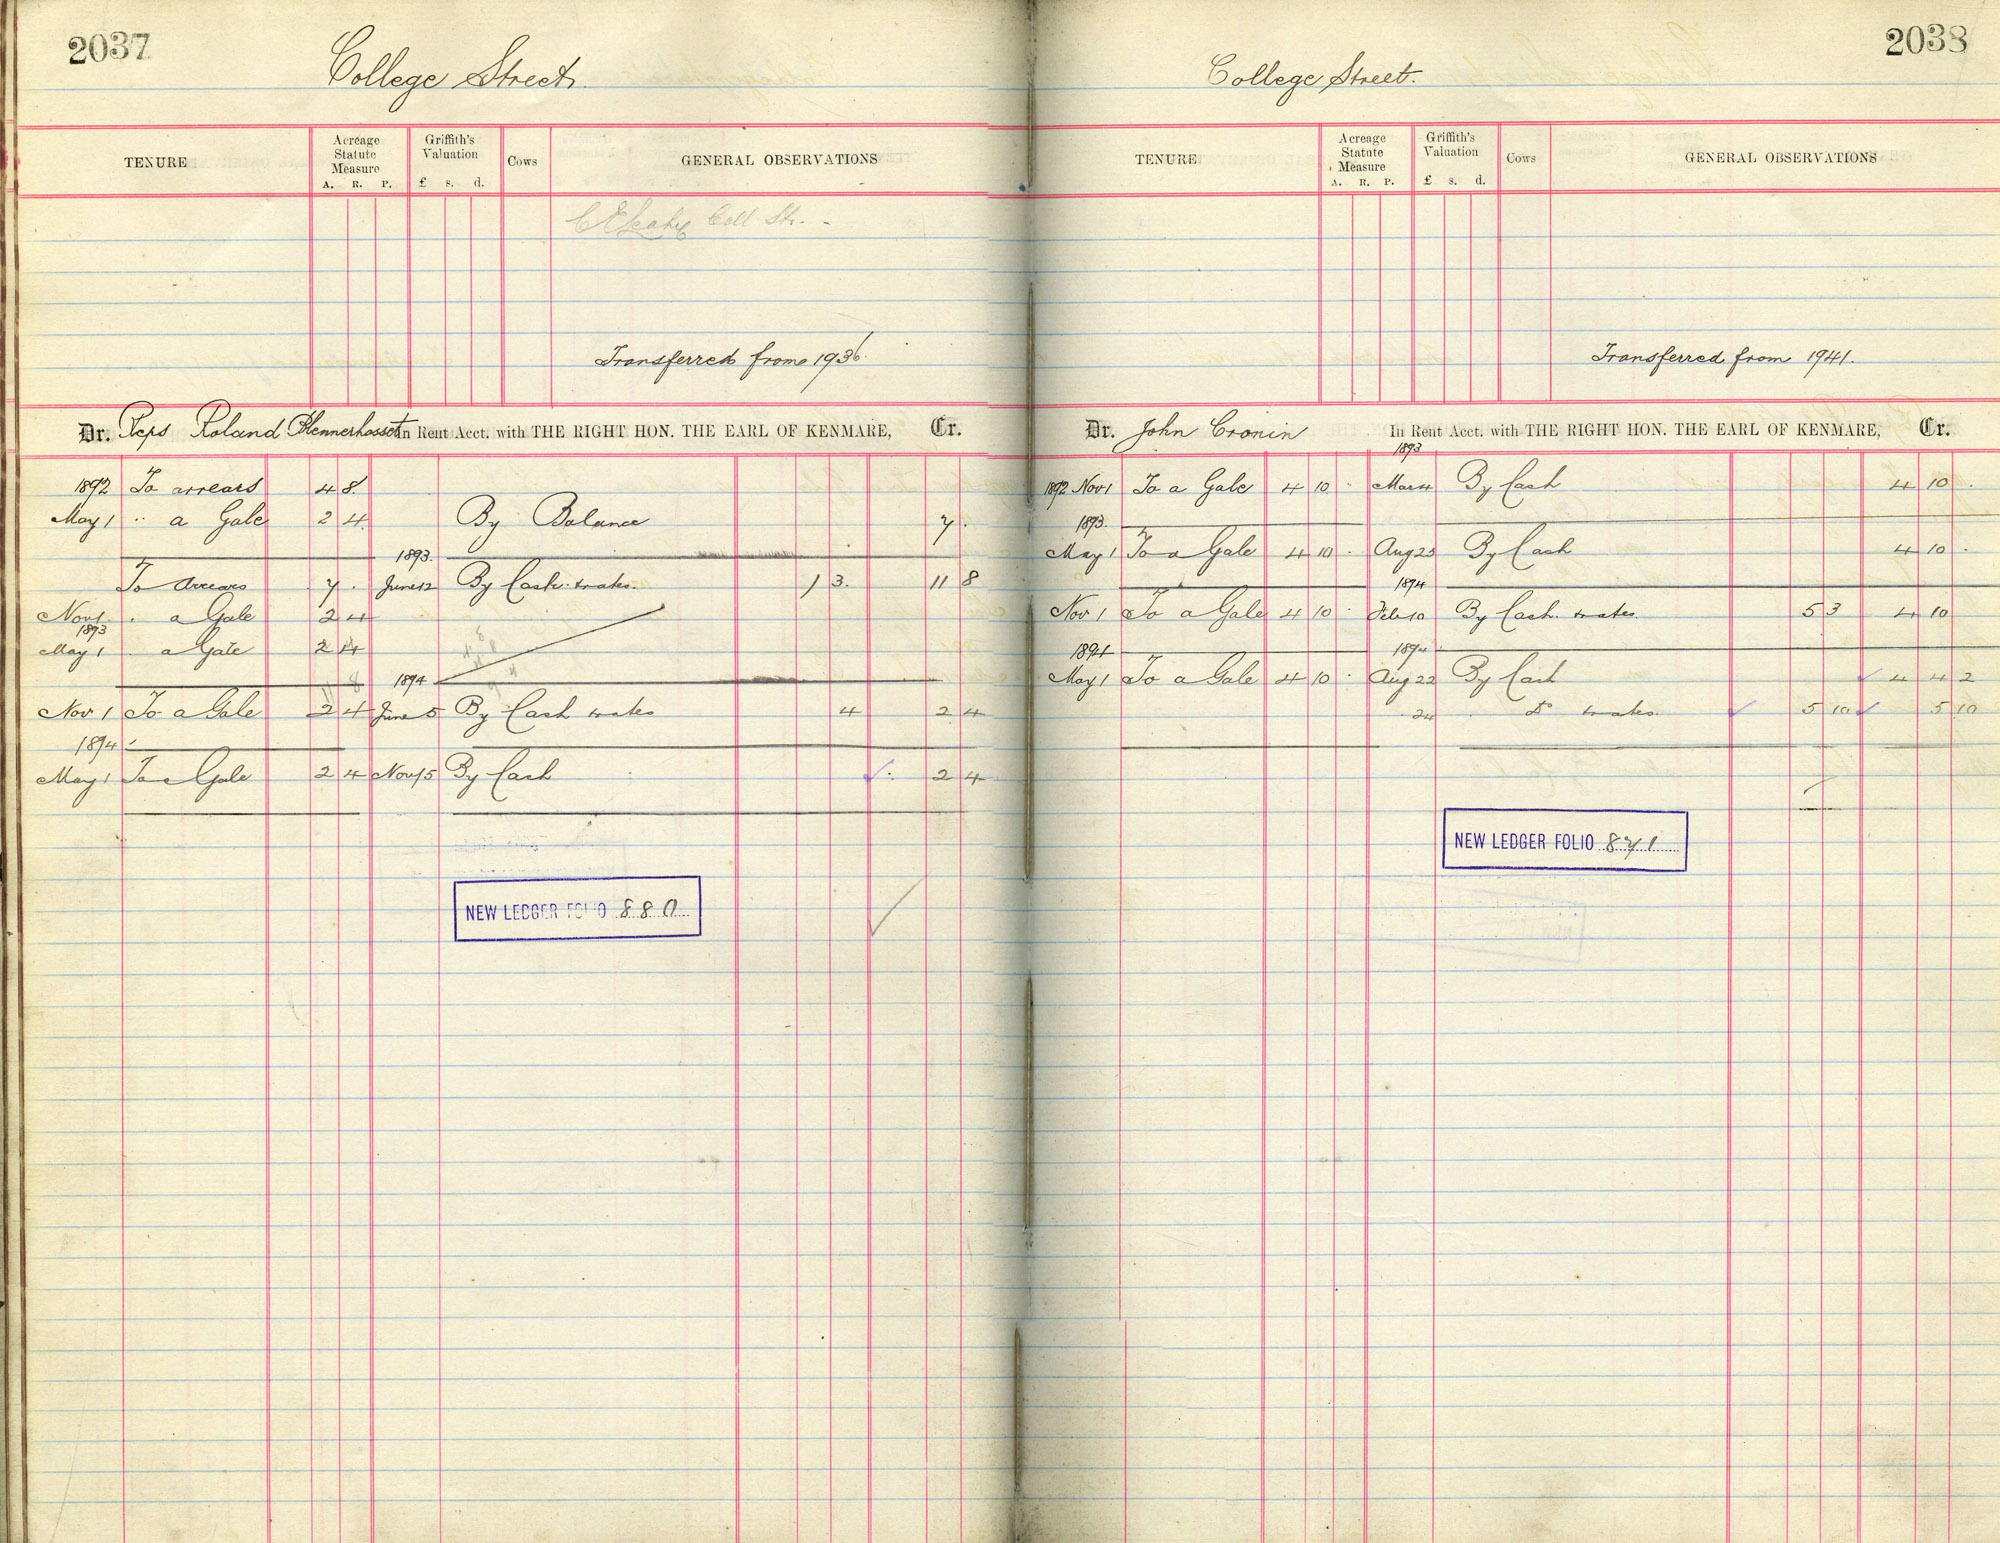 2037
College Street.
TENURE
Acreage Statute Measure
A. R. P.
Griffith's Valuation
£ s. d.
Cows
GENERAL OBSERVATIONS
Coll Str. -
Transferred from 1936
Dr. Reps Roland Blennerhassett In Rent Acct. with THE RIGHT HON. THE EARL OF KENMARE, Cr.
1892 To arrears 4 8
May 1 " a Gale 2 4 By Balance 7 .
1893
To Arrears 7 . June 12 By Cash & rates. 1 3. 11 8
Nov 1 . a Gale 2 4
1893
May 1 . a Gale 2 4
11 8 1894
Nov 1 To a Gale 2 4 June 5 By Cash & rates 4 2 4
1894
May 1 To a Gale 2 4 Nov 15 By Cash 2 4
NEW LEDGER FOLIO 880
2038
College Street.
TENURE
Acreage Statute Measure
A. R. P.
Griffith's Valuation
£ s. d.
Cows
GENERAL OBSERVATIONS
Transferred from 1941.
Dr. John Cronin In Rent Acct. with THE RIGHT HON. THE EARL OF KENMARE, Cr.
1893
1892 Nov 1 To a Gale 4 10 . Mar 4 By Cash 4 10 .
1893
May 1 To a Gale 4 10 . Aug 23 By Cash 4 10 .
1894
Nov 1 To a Gale 4 10 . Feb 10 By Cash & rates. 5 3 4 10
1894 1894
May 1 To a Gale 4 10 . Aug 22 By Cash 4 4 2
" 24 Do & rates. 5 10 5 10
NEW LEDGER FOLIO 871